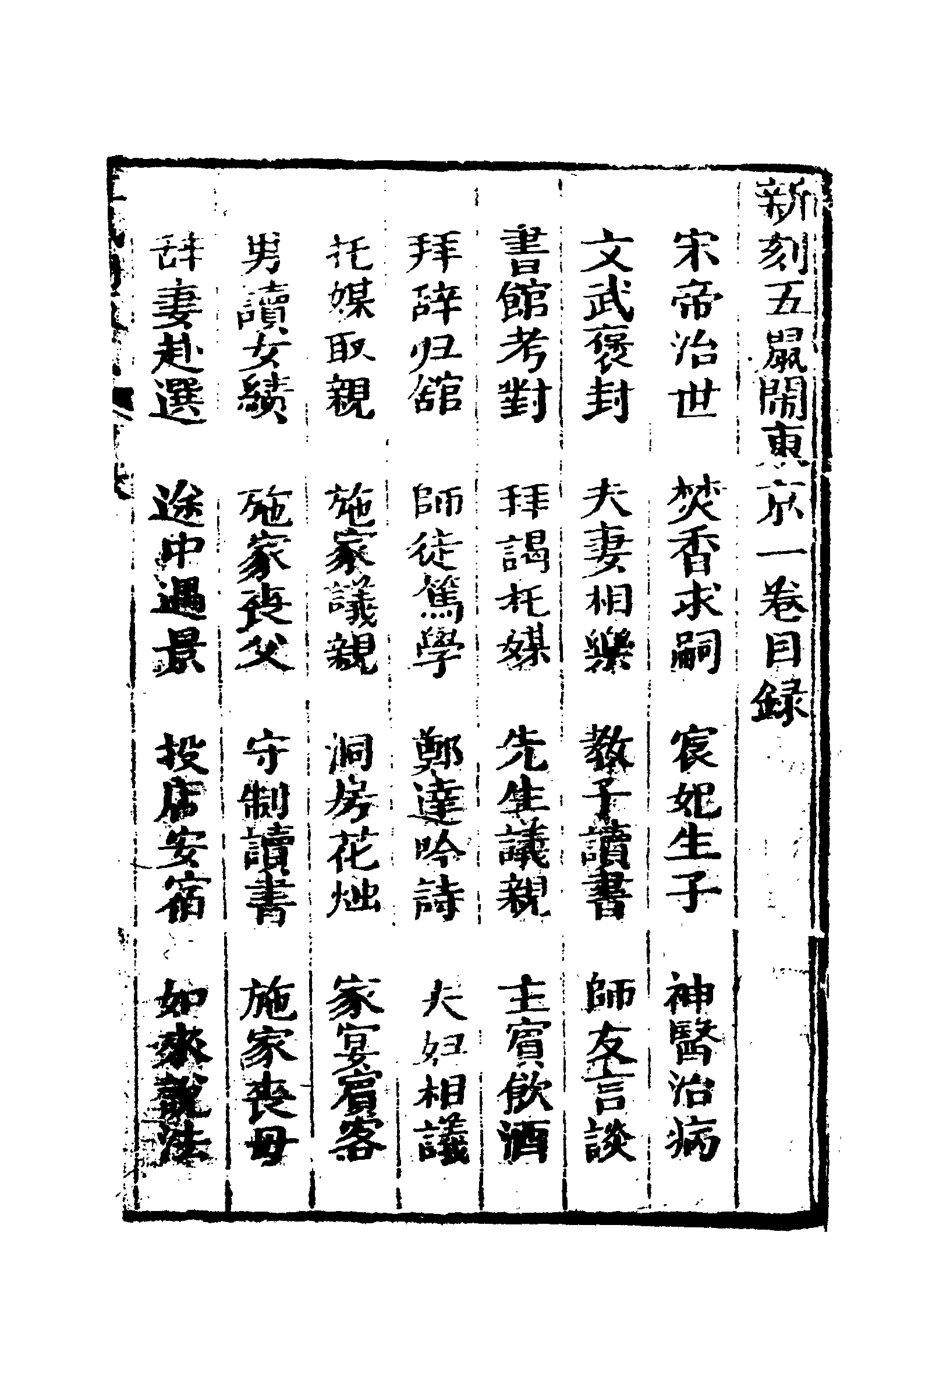 新刻五鼠閙東京一卷目録
宋帝治世　焚香求嗣　宸妃生子　神醫治病
文武褒封　夫妻相樂　教子讀書　師友言談
書館考對　拜謁托媒　先生議親　主賓飲酒
拜辞归舘　師徒篤學　鄭達吟詩　夫妇相議
托媒取親　施家議親　洞房花烛　家宴賓客
男讀女績　施家丧父　守制讀書　施家丧母
辞妻赴選　途中遇景　投店安宿　如來說法